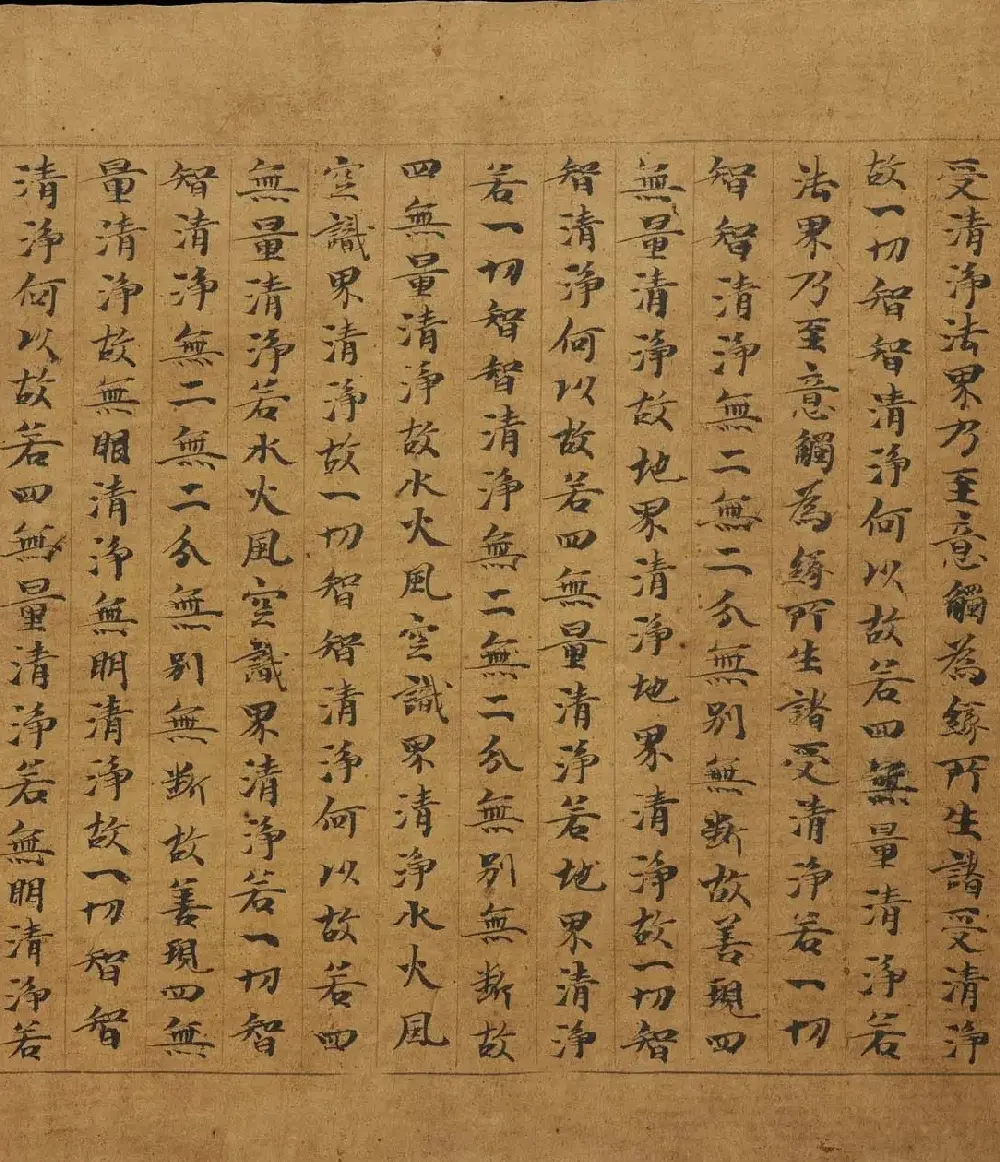 受清淨法界乃至意觸為緣所生諸受清淨
故一切智智清淨何以故若四無量清淨若
法界乃至意觸為緣所生諸受清淨若一切
智智清淨無二無二分無別無断故善現四
無量清淨故地界清淨地界清淨故一切智
智清淨何以故若四無量清淨若地界清淨
若一切智智清淨無二無二分無別無断故
四無量清淨故水火風空識界清淨水火風
空識界清淨故一切智智清淨何以故若四
無量清淨若水火風空識界清淨若一切智
智清淨無二無二分無別無断故善現四無
量清淨故無眀清淨無明清淨故一切智智
清淨何以故若四無量清淨若無明清淨若